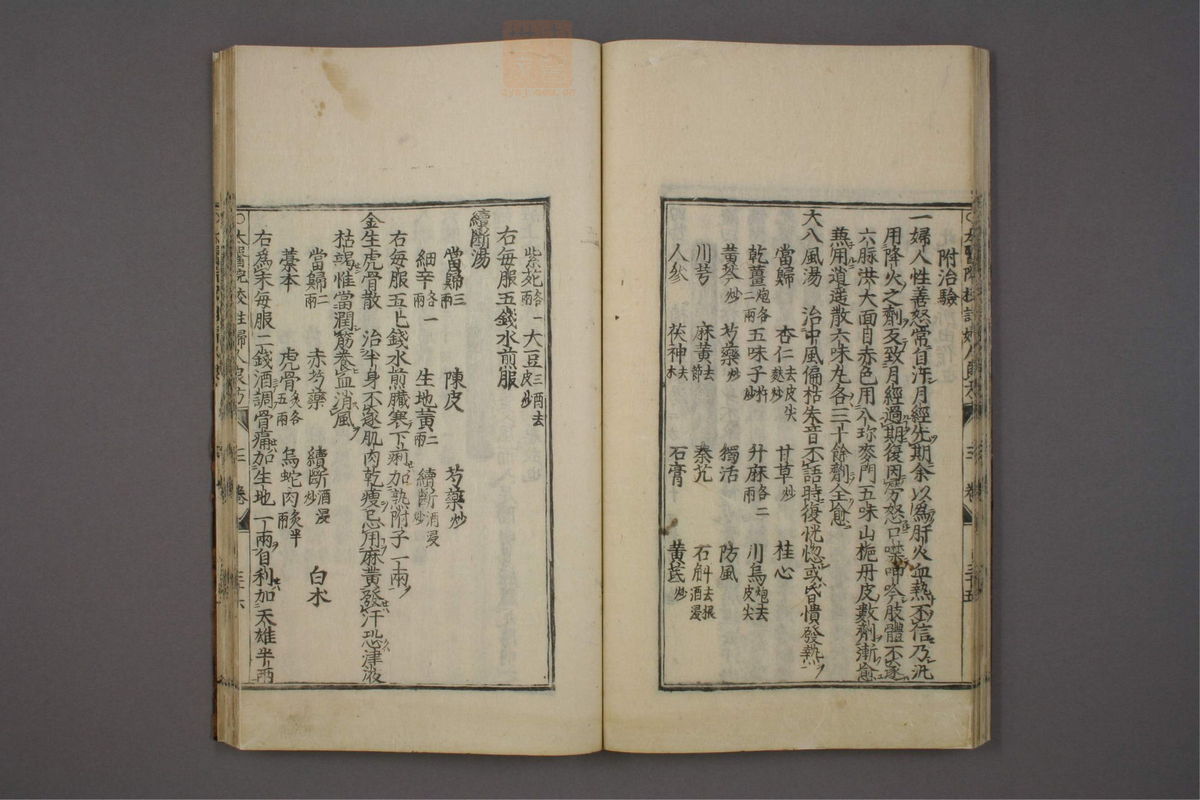 附治驗
一婦人性善怒常自汗月經先期余以爲肝火血熱不信乃汎
用降火之劑反致月經過期復因勞怒口噤呻吟肢體不遂
六脉洪大面目赤色用八珍麥門五味山梔丹皮數劑漸愈
兼用逍遥散六味丸各三十餘劑全愈
大八風湯 治中風偏枯失音不語時復恍惚或昏憒發熱
當歸 杏仁去皮尖麩炒 甘草炒 桂心
乾薑炮各二兩 五味子杵 升麻各二兩 川烏炮去皮尖
黄芩炒 芍藥炒 獨活 防風
川芎 麻黄去節 秦艽 石斛去根酒浸
人參 茯神去木 石膏 黄芪炒
紫菀各一兩 大豆三兩去皮炒
右每服五錢水煎服
續斷湯
當歸三兩 陳皮 芍藥炒
細辛各一兩 生地黄二兩 續斷酒浸炒
右每服五七錢水煎臟寒下痢加熟附子一兩
金生虎骨散 治半身不遂肌肉乾瘦忌用麻黄發汗恐津液
枯竭惟當潤筋養血消風
當歸二兩 赤芍藥 續斷酒浸炒 白朮
藁本 虎骨炙各五兩 烏蛇肉炙半兩
右爲末每服二錢酒調骨痛加生地一兩自利加天雄半兩
太醫院校註婦人良方 三卷 三十六